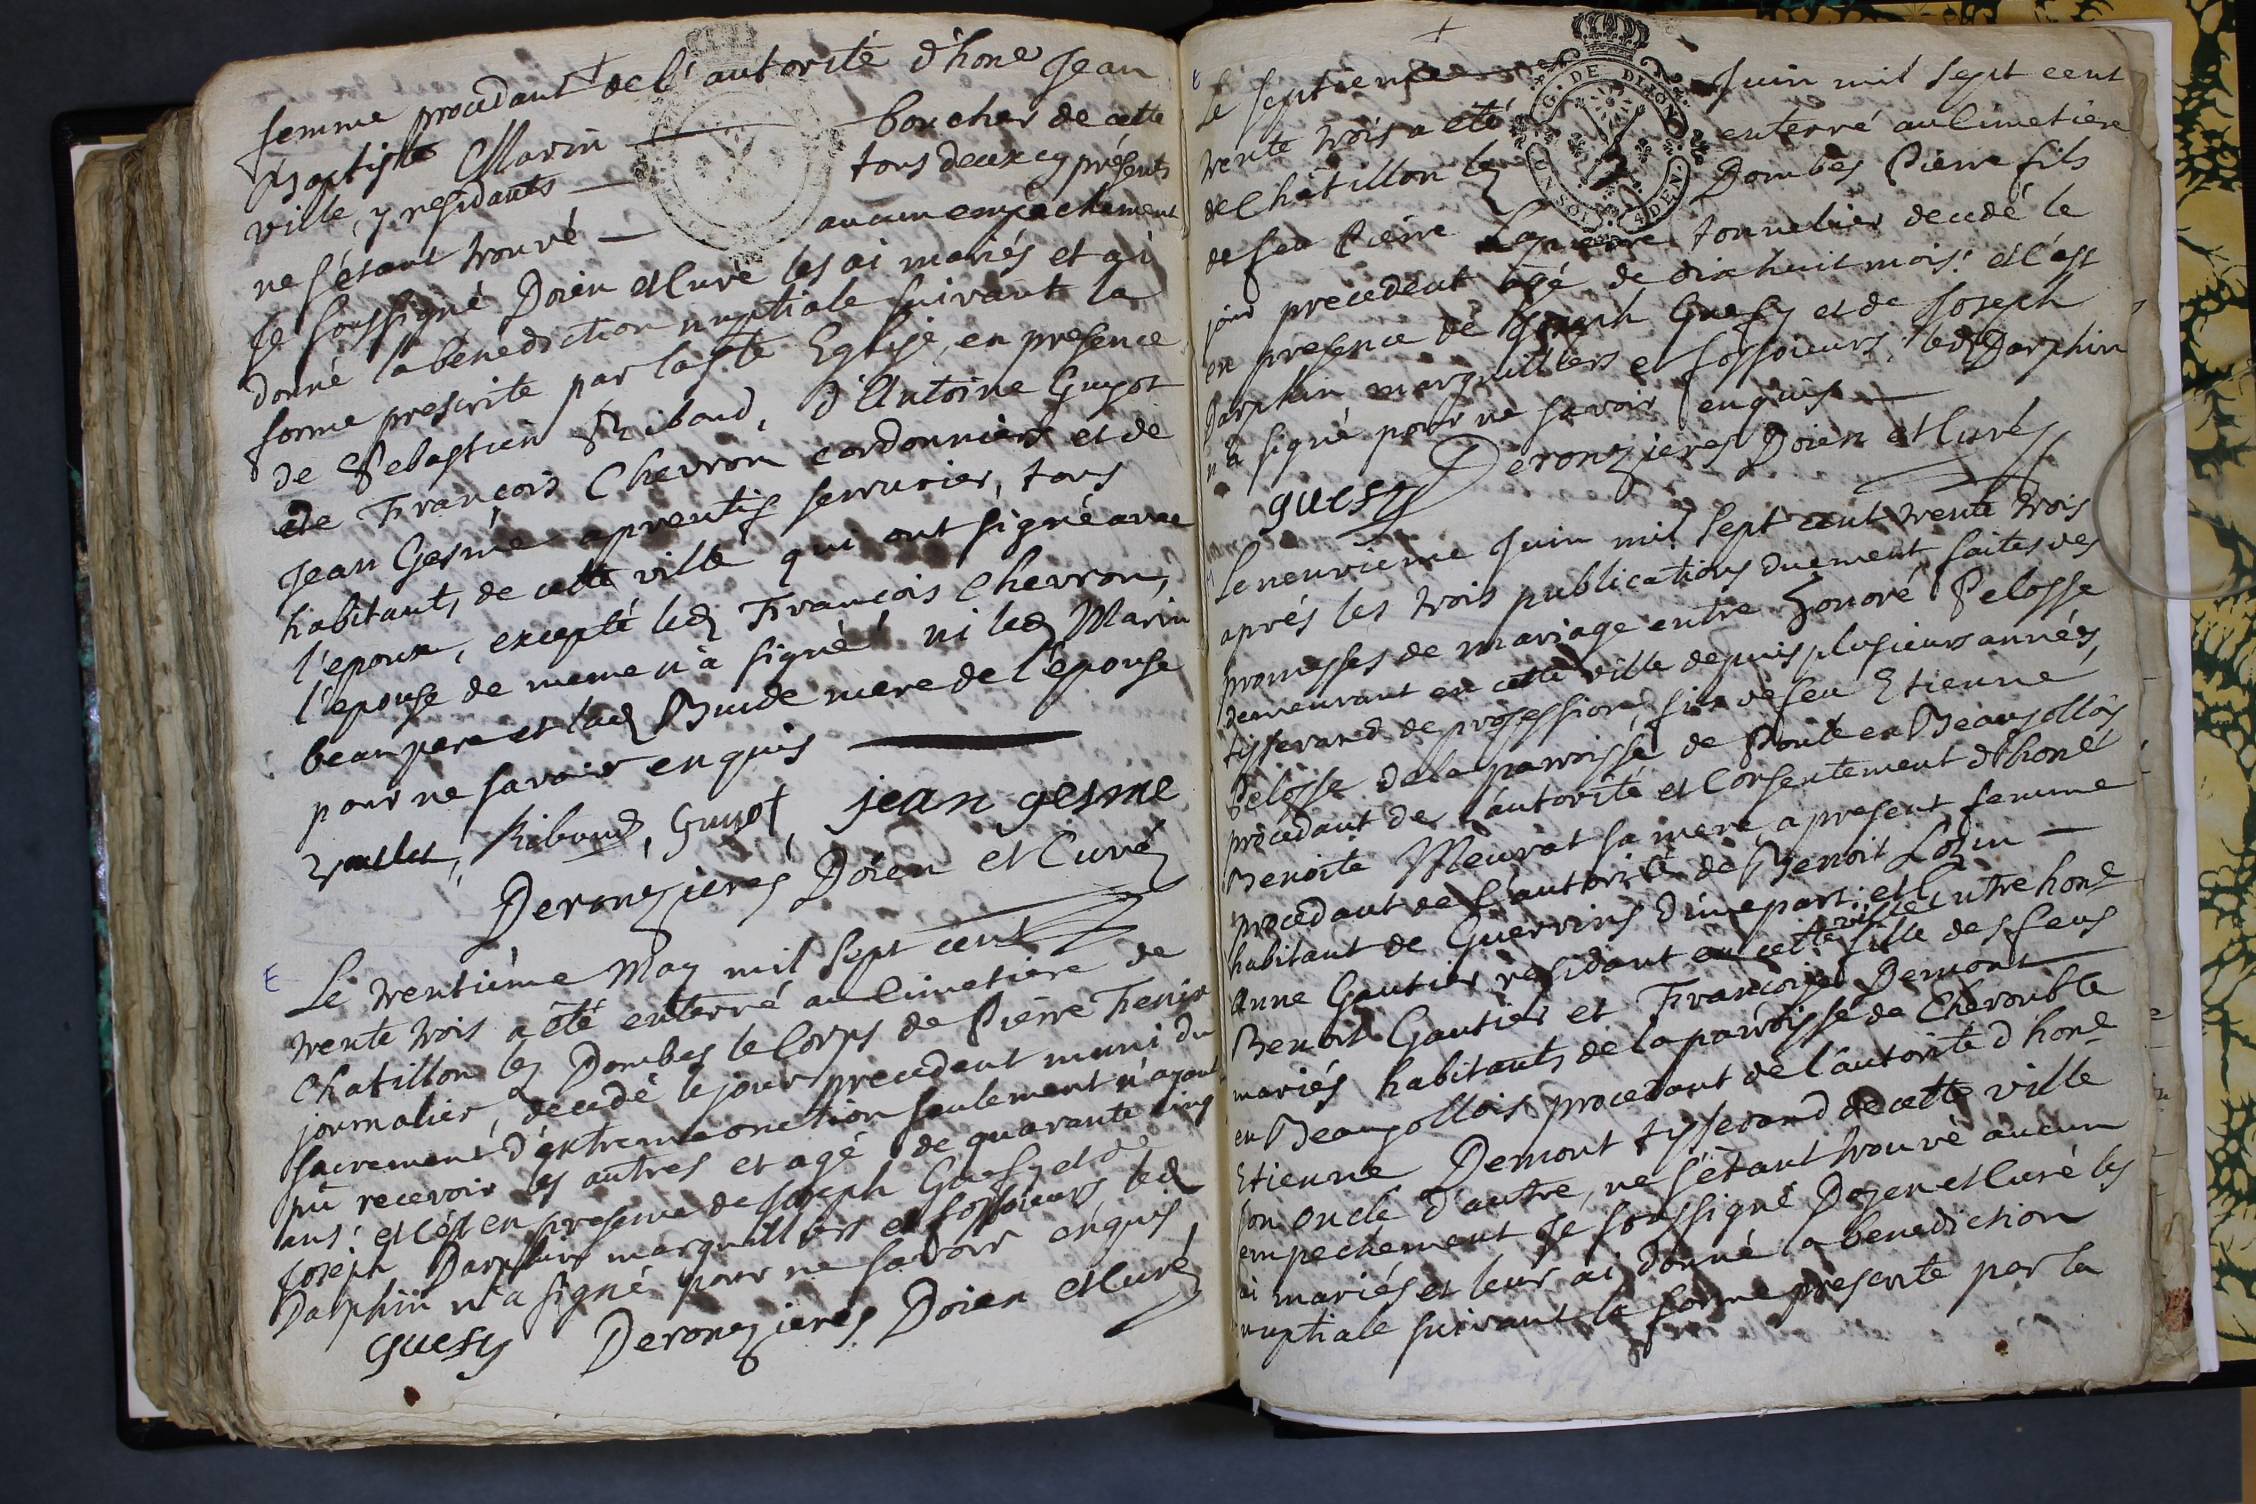 femme procedant de l'autorité d'hone Jean
Baptiste Marin boucher de cette
ville, y residants tous deux cy présents
ne s'étant trouvé aucun empechement
Je soussigné Doien et Curé les ai mariés et ai
donné la bénédiction nuptiale suivant la
forme prescrite par la ste Eglise, en presence
de Sebastien Ribaud, d'Antoine Guyot
et de François Chevron cordonniers et de
Jean Gesme aprentif serrurier, tous
habitants de cette ville qui ont signé avec
l'epoux, excepté led François Chevron,
l'epouse de meme n'a signé ni led Marin
beaupere et lad Buide mere de l'épouse
pour ne savoir enquis
Ribaud, Guyot, jean gesme
Deronzieres Doien et Curé
Le trentième May mil sept cent
trente trois a été enterré au Cimetiere de
Chatillon lez Dombes le Corps de Pierre Fenix
journalier, décédé le jour precedent muni du
sacrement d'extremeonction seulement n'ayant
pû recevoir les autres et agé de quarante cinq
ans: et c'est en presence de Joseph Guesy et de
Joseph Darphin marguilliers et fossoieurs led
Darphin n'a signé pour ne savoir enquis
guesy Deronzieres Doien et Curé
Le septieme Juin mil sept cent
trente trois a été enterré au Cimetière
de Châtillon lez Dombes Pierre fils
de feu Pierre tonnelier decedé le
jour precedent agé de dix huit mois: et c'est
en presence de Joseph Guesy et de Joseph
Darphin marguilliers et fossoieurs, led Darphin
n'a signé pour ne savoir enquis
guesy Deronzieres Doien et Curé
Le neuvieme Juin mil sept cent trente trois
aprés les trois publications duement faites des
promesses de mariage entre honoré Pelosse
demeurant en cette ville depuis plusieurs années,
tisserand de profession, fils de feu Etienne
Pelosse de la parroisse de Poule en Beaujollois
procedant de l'autorité et Consentement d'hone
Benoite Meurat sa mere, a present femme
procedant de l'autorité de Benoit Lozin
habitant de Guerrins d'une part: et Entre hone
Anne Gautier residant en cette ville fille des feus
Benoit Gautier et Françoise Demont
mariés habitants de la parroisse de Cheroubte
en Beaujollois procedant de l'autorité d'hone
Etienne Demont tisserand de cette ville
son oncle d'autre, ne s'étant trouvé aucun
empechement Je soussigné Doyen et Curé les
ai mariés et leur ai donné la benediction
nuptiale suivant la forme prescrite par la
G. DE DIJON
UN SOL 4 DEN